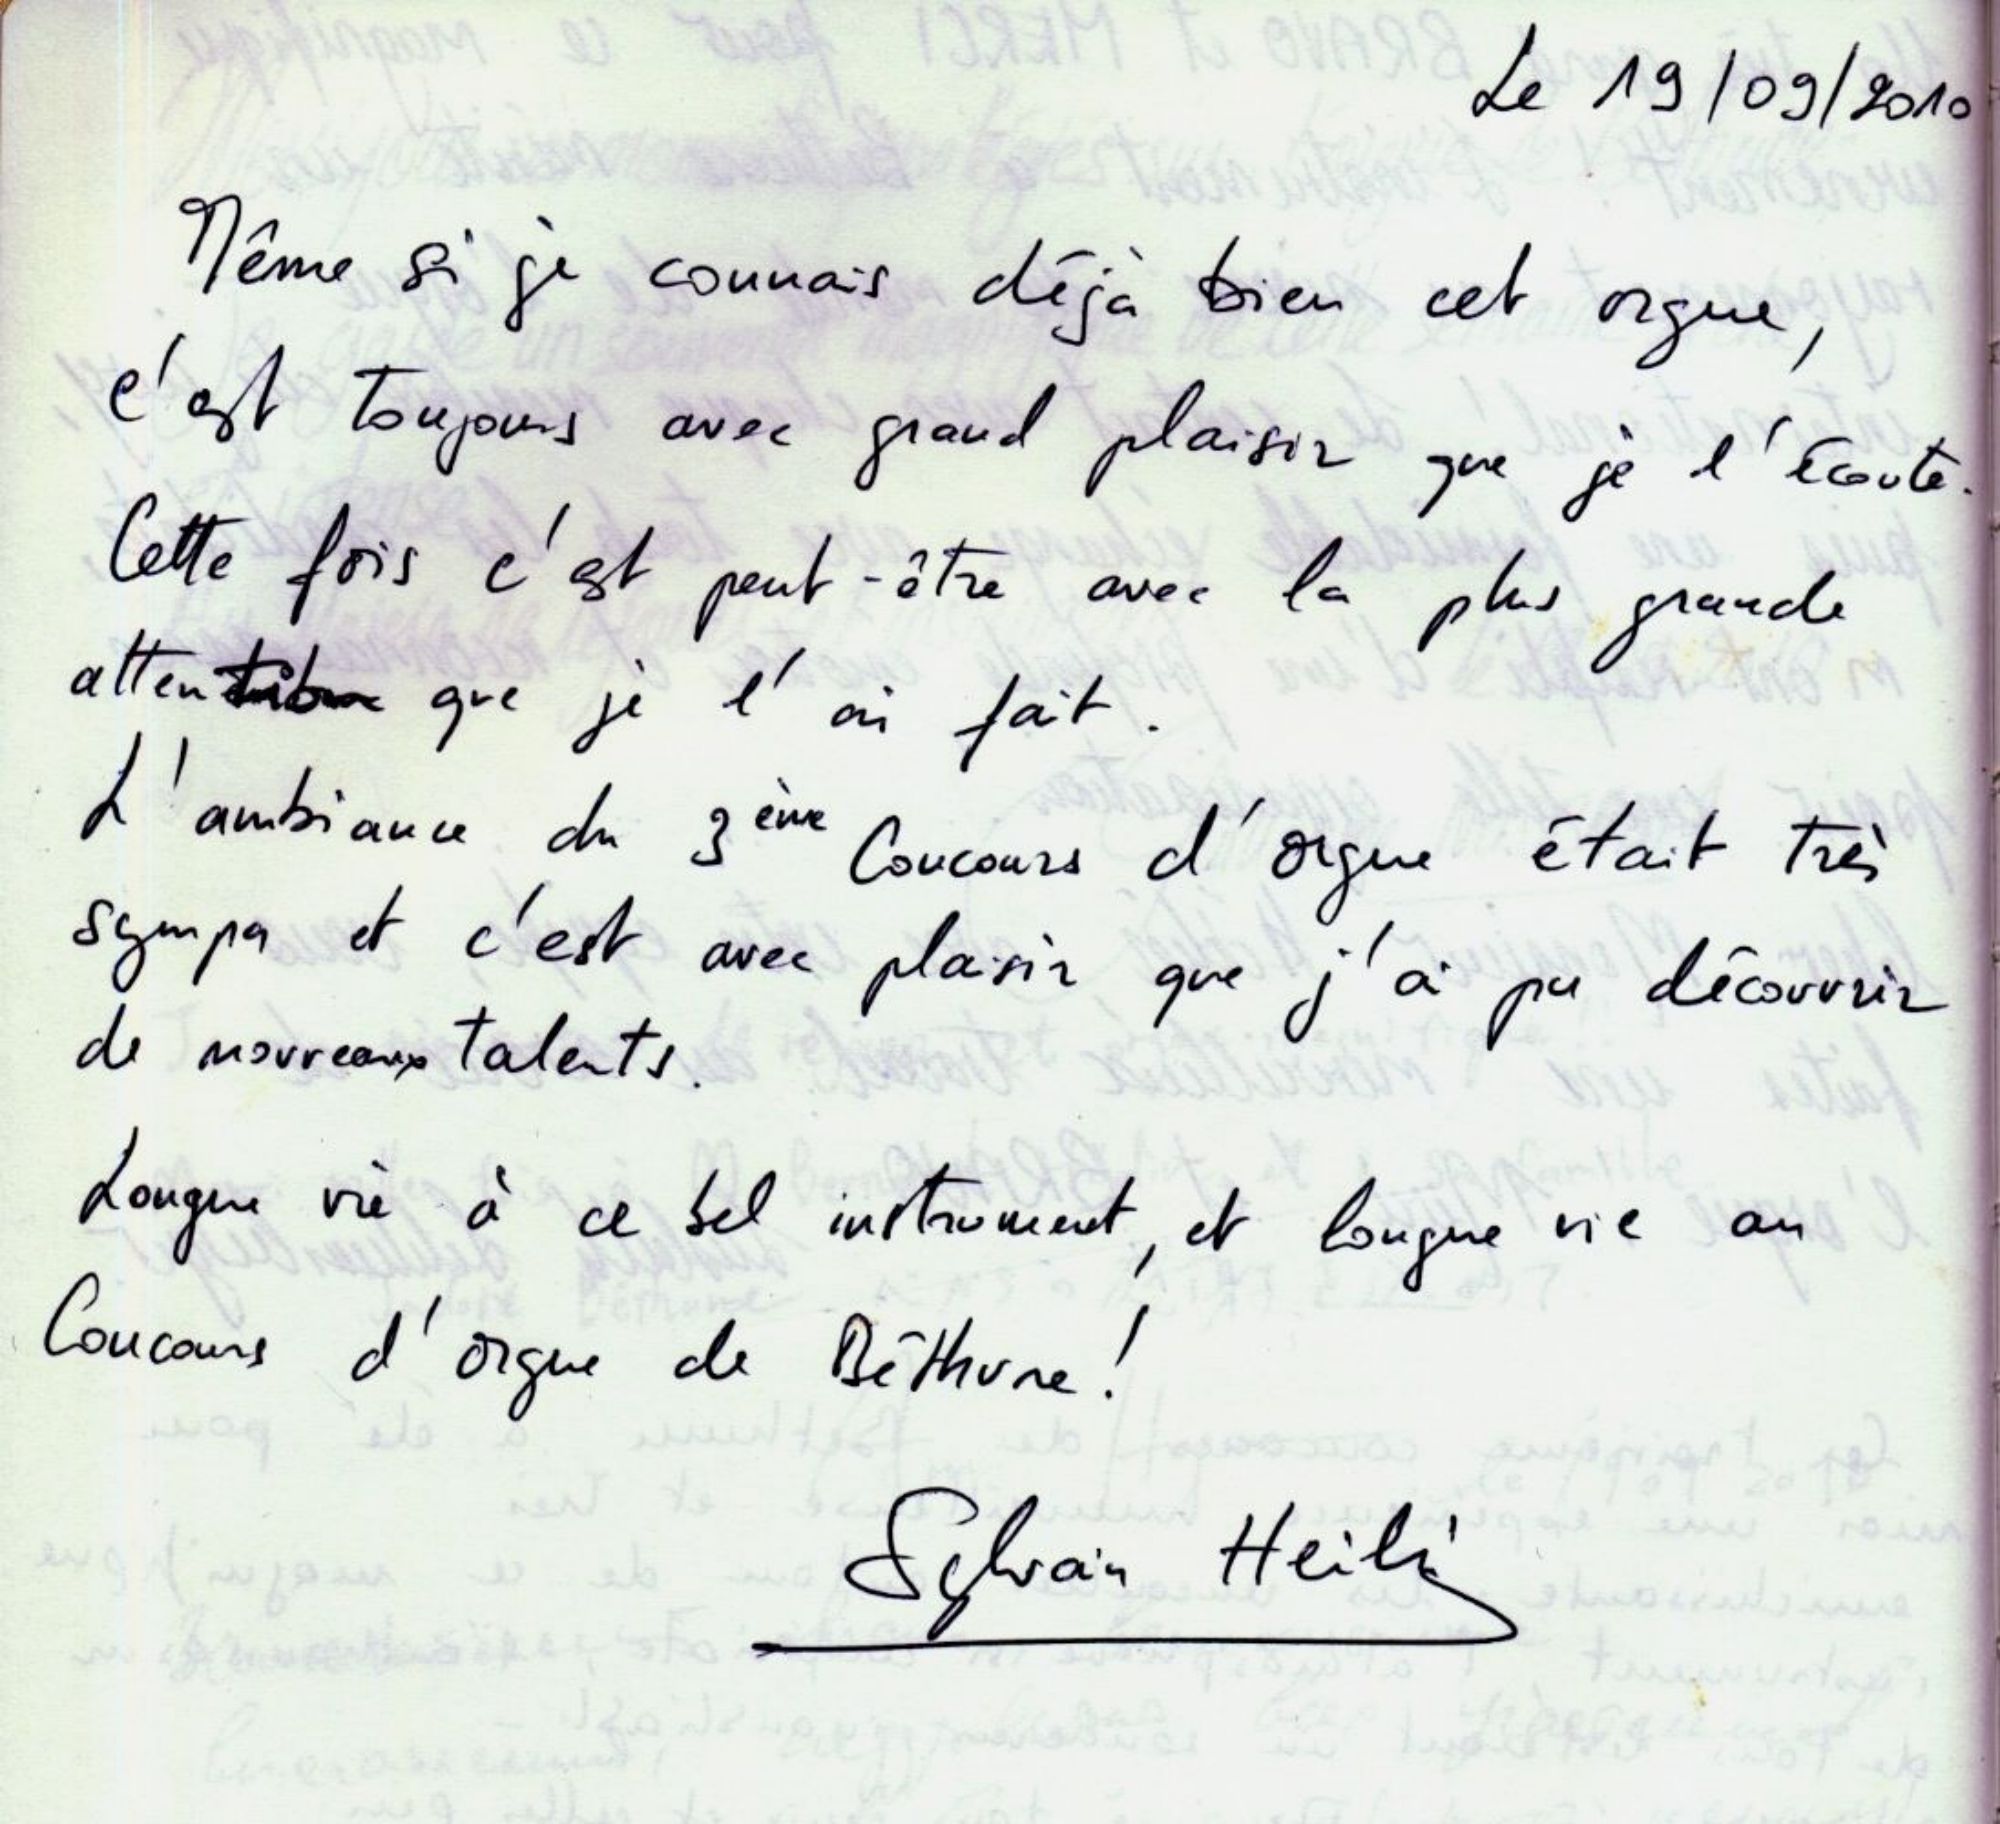 Le 19/09/2010
Même si je connais déjà bien cet orgue,
c'est toujours avec grand plaisir que je l'écoute.
Cette fois c'est peut-être avec la plus grande
attention que je l'ai fait.
L'ambiance du 3ème Concours d'orgue était très
sympa et c'est avec plaisir que j'ai pu découvrir
de nouveaux talents.
Longue vie à ce bel instrument, et longue vie au
Concours d'orgue de Béthune!
Sylvain Heili